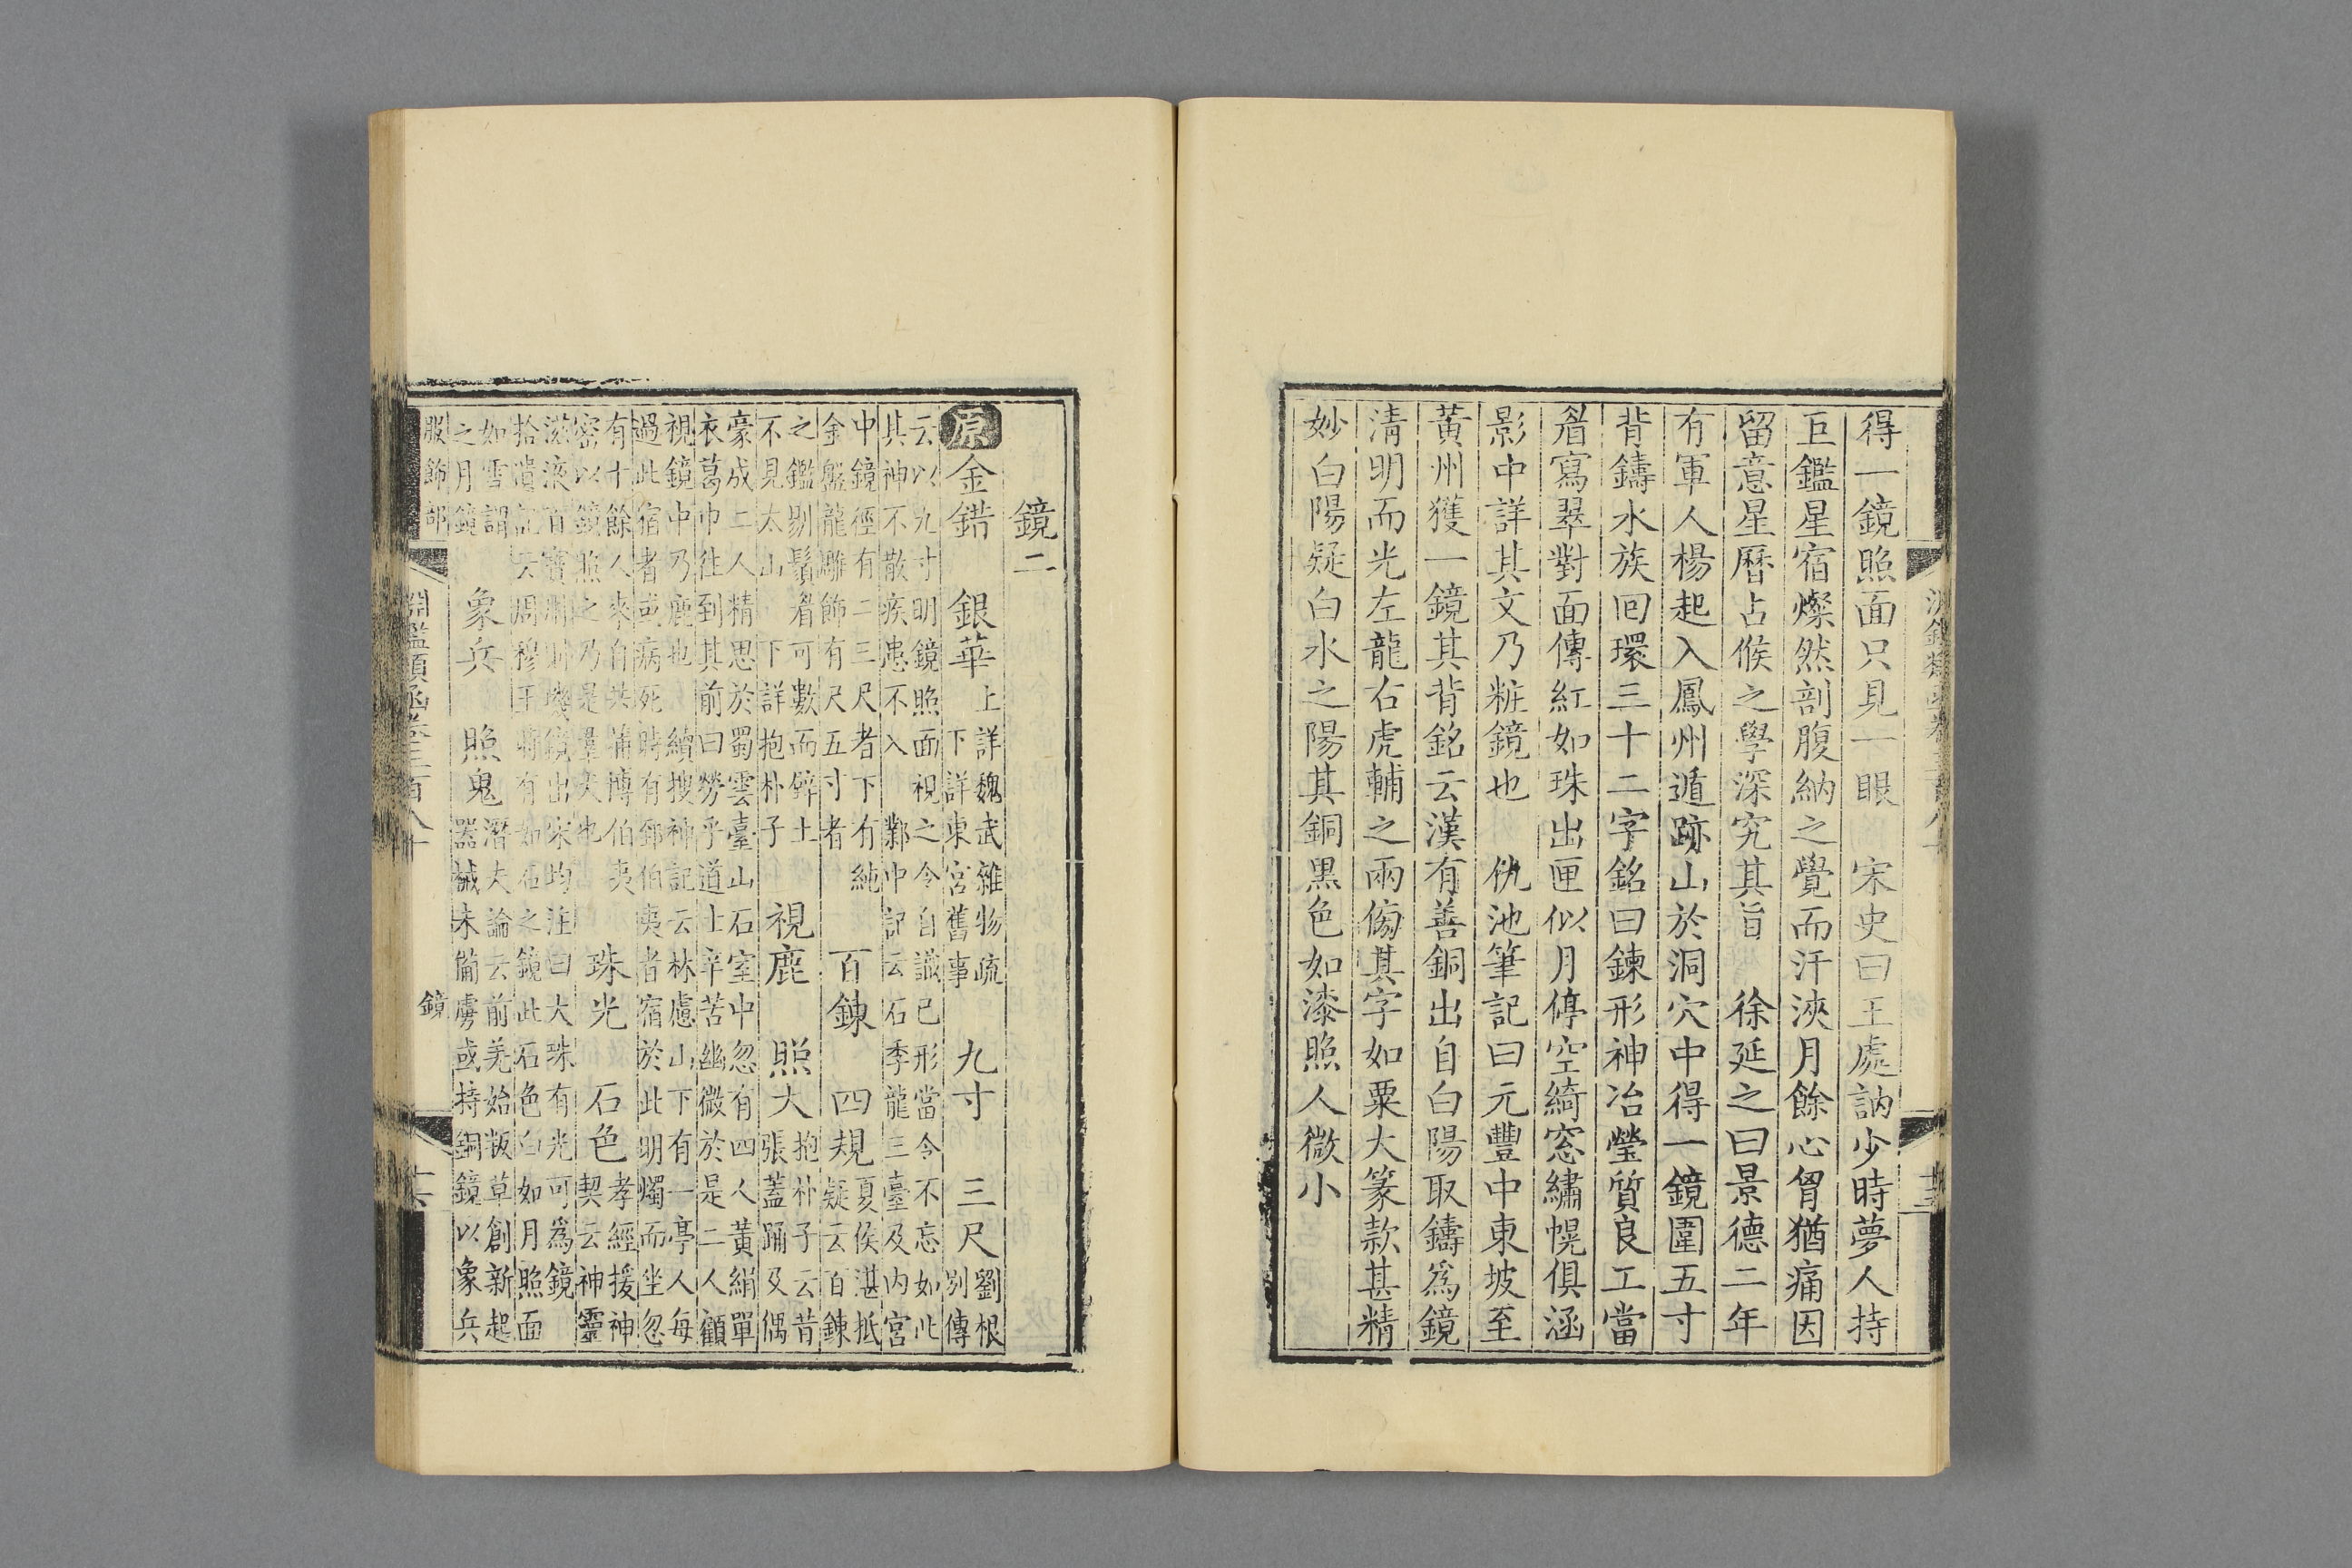 得一鏡照面只見一眼　宋史曰王處訥少時夢人持
巨鑑星宿燦然剖腹納之覺而汗浹月餘心胷猶痛因
留意星曆占候之學深究其旨　徐延之曰景德二年
有軍人楊起入鳳州遁跡山於洞穴中得一鏡圍五寸
背鑄水族回環三十二字銘曰鍊形神冶瑩質良工當
眉寫翠對面傳紅如珠出匣似月停空綺窓繡幌俱涵
影中詳其文乃粧鏡也　仇池筆記曰元豐中東坡至
黃州獲一鏡其背銘云漢有善銅出自白陽取鑄爲鏡
清明而光左龍右虎輔之兩傍其字如粟大篆款甚精
妙白陽疑白水之陽其銅黑色如漆照人微小
鏡二
原金錯　銀華
上詳魏武雜物疏
下詳東宮舊事
九寸　三尺
劉根別傳
云以九寸明鏡照面視之令自識已形當令不忘如此
其神不散疾患不入　鄴中記云石季龍三臺及內宮
中鏡徑有二三尺者下有純
金盤龍雕飾有尺五寸者
百鍊　四規
夏侯湛抵
疑云百鍊
之鑑剔鬚眉可數而辟土
不見太山　下詳抱朴子
視鹿　照大
抱朴子云昔
張蓋踊及偶
豪成二人精思於蜀雲臺山石室中忽有四人黃絹單
衣葛巾往到其前曰勞乎道士辛苦幽微於是二人顧
視鏡中乃鹿也　續搜神記云林慮山下有一亭人每
過此宿者或病死時有郅伯夷者宿於此明燭而坐忽
有十餘人來自共樗博伯夷
密以鏡照之乃是羣犬也
珠光　石色
孝經援神
契云神靈
滋液百寶用則璣鏡出宋均注曰大珠有光可爲鏡
拾遺記云周穆王時有如石之鏡此石色白如月照面
如雪謂
之月鏡
象兵　照鬼
潛夫論云前羌始叛草創新起
器械未備虜或持銅鏡以象兵
服飾部
鏡
淵鑑類函卷三百八十